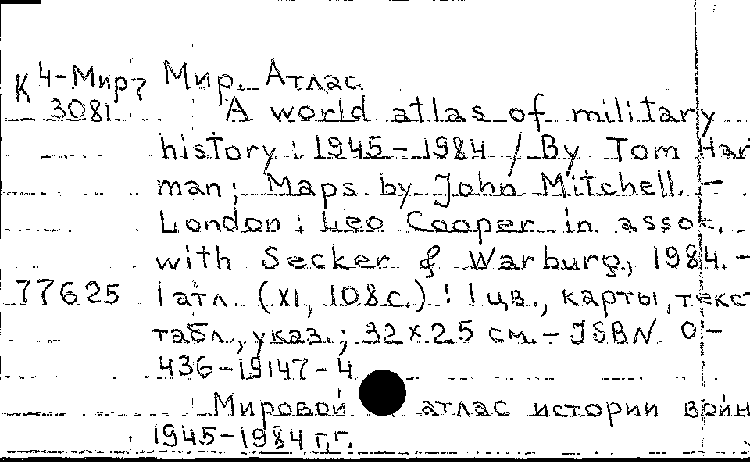 К 4-Мир7 Мир. Атлас.
3081 A world atlas of military
history : 1945-1984 / By Tom Har
man; Maps by John Mitchell. -
London : Leo Cooper in assoc.
with Secker & Warburg, 1984. -
77625 1 атл. (XI, 108 с.) : цв., карты, текс
табл., указ.; 32 x 25 см. - ISBN 0-
436-19147-4
Мировой атлас истории войн
1945-1984 г.г.